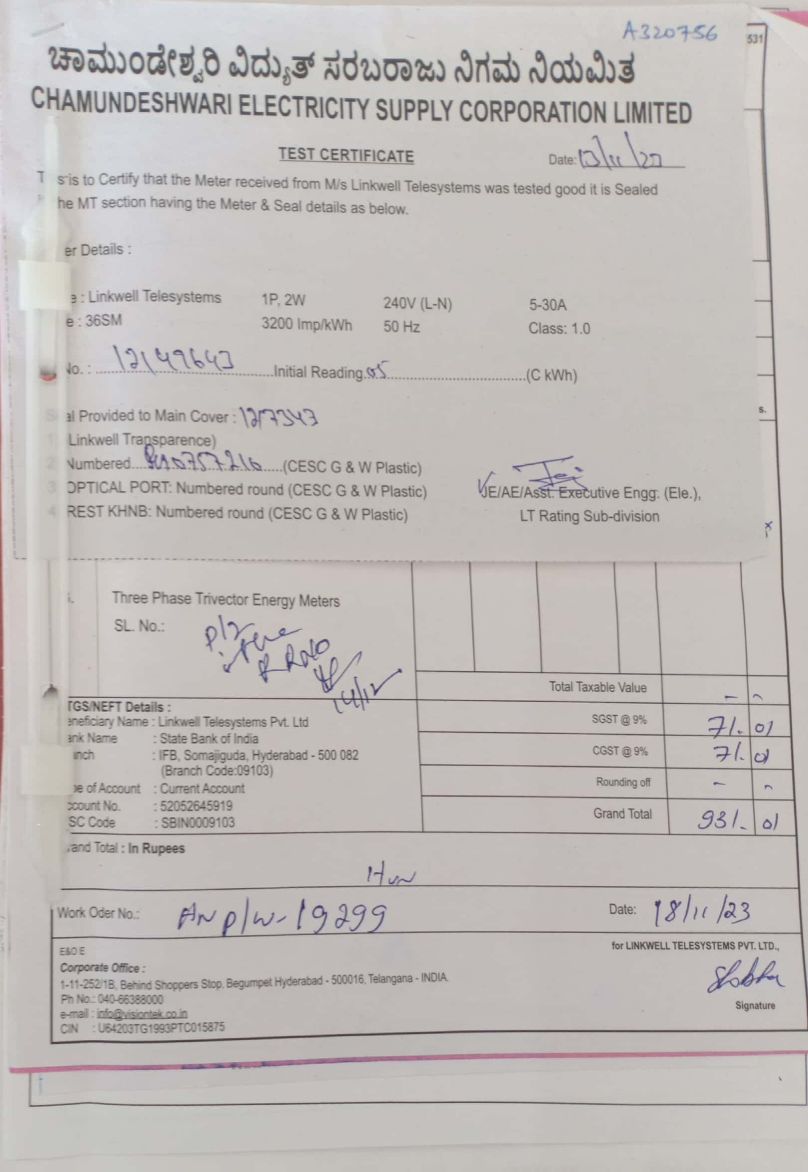 A320756
531
ಚಾಮುಂಡೇಶ್ವರಿ ವಿದ್ಯುತ್ ಸರಬರಾಜು ನಿಗಮ ನಿಯಮಿತ
CHAMUNDESHWARI ELECTRICITY SUPPLY CORPORATION LIMITED
TEST CERTIFICATE
Date:
T s is to Certify that the Meter received from M/s Linkwell Telesystems was tested good it is Sealed
he MT section having the Meter & Seal details as below.
er Details :
e : Linkwell Telesystems 1P, 2W 240V (L-N) 5-30A
e : 36SM 3200 Imp/kWh 50 Hz Class: 1.0
No. : 12149643 Initial Reading 05 (C kWh)
s.
al Provided to Main Cover : 127343
Linkwell Transparence)
2 Numbered (CESC G & W Plastic)
3 OPTICAL PORT: Numbered round (CESC G & W Plastic) JE/AE/Asst. Executive Engg. (Ele.),
4 REST KHNB: Numbered round (CESC G & W Plastic) LT Rating Sub-division
Three Phase Trivector Energy Meters
SL. No.:
14/12
Total Taxable Value
TGS/NEFT Details :
eneficiary Name : Linkwell Telesystems Pvt. Ltd SGST @ 9% 71. 01
ank Name : State Bank of India
anch : IFB, Somajiguda, Hyderabad - 500 082 CGST @ 9% 71. 01
(Branch Code:09103)
pe of Account : Current Account Rounding off
ccount No. : 52052645919
SC Code : SBIN0009103 Grand Total 931. 01
rand Total : In Rupees
Work Oder No.: 19299 Date: 18/11/23
E&O E for LINKWELL TELESYSTEMS PVT. LTD.,
Corporate Office :
1-11-252/1B, Behind Shoppers Stop, Begumpet Hyderabad - 500016, Telangana - INDIA.
Ph No.: 040-66388000
e-mail : info@visiontek.co.in Signature
CIN : U64203TG1993PTC015875